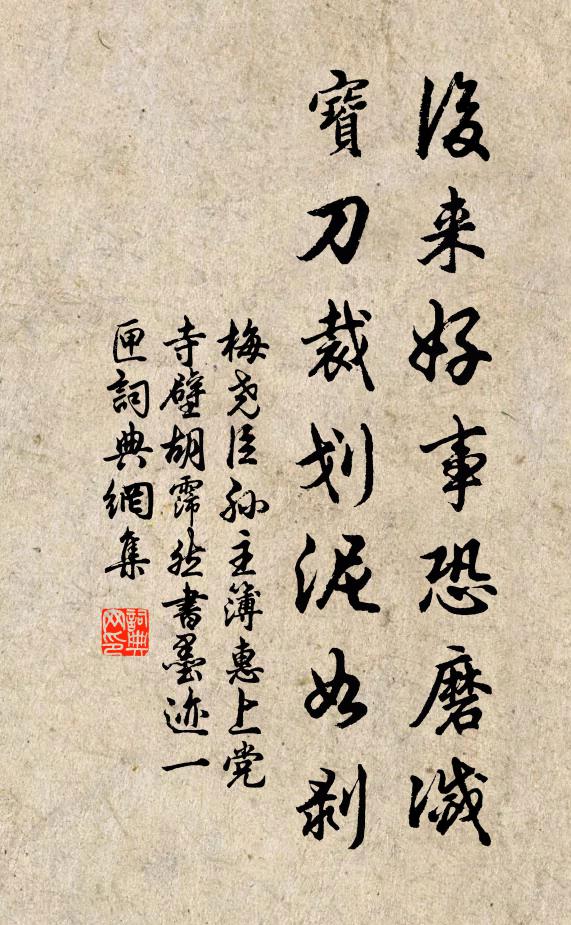 後来好事恐磨滅
寶刀裁划泥如剥
梅尧臣孙主簿惠上党
寺壁胡霈然書墨迹一
匣詞典網集
詞典网印